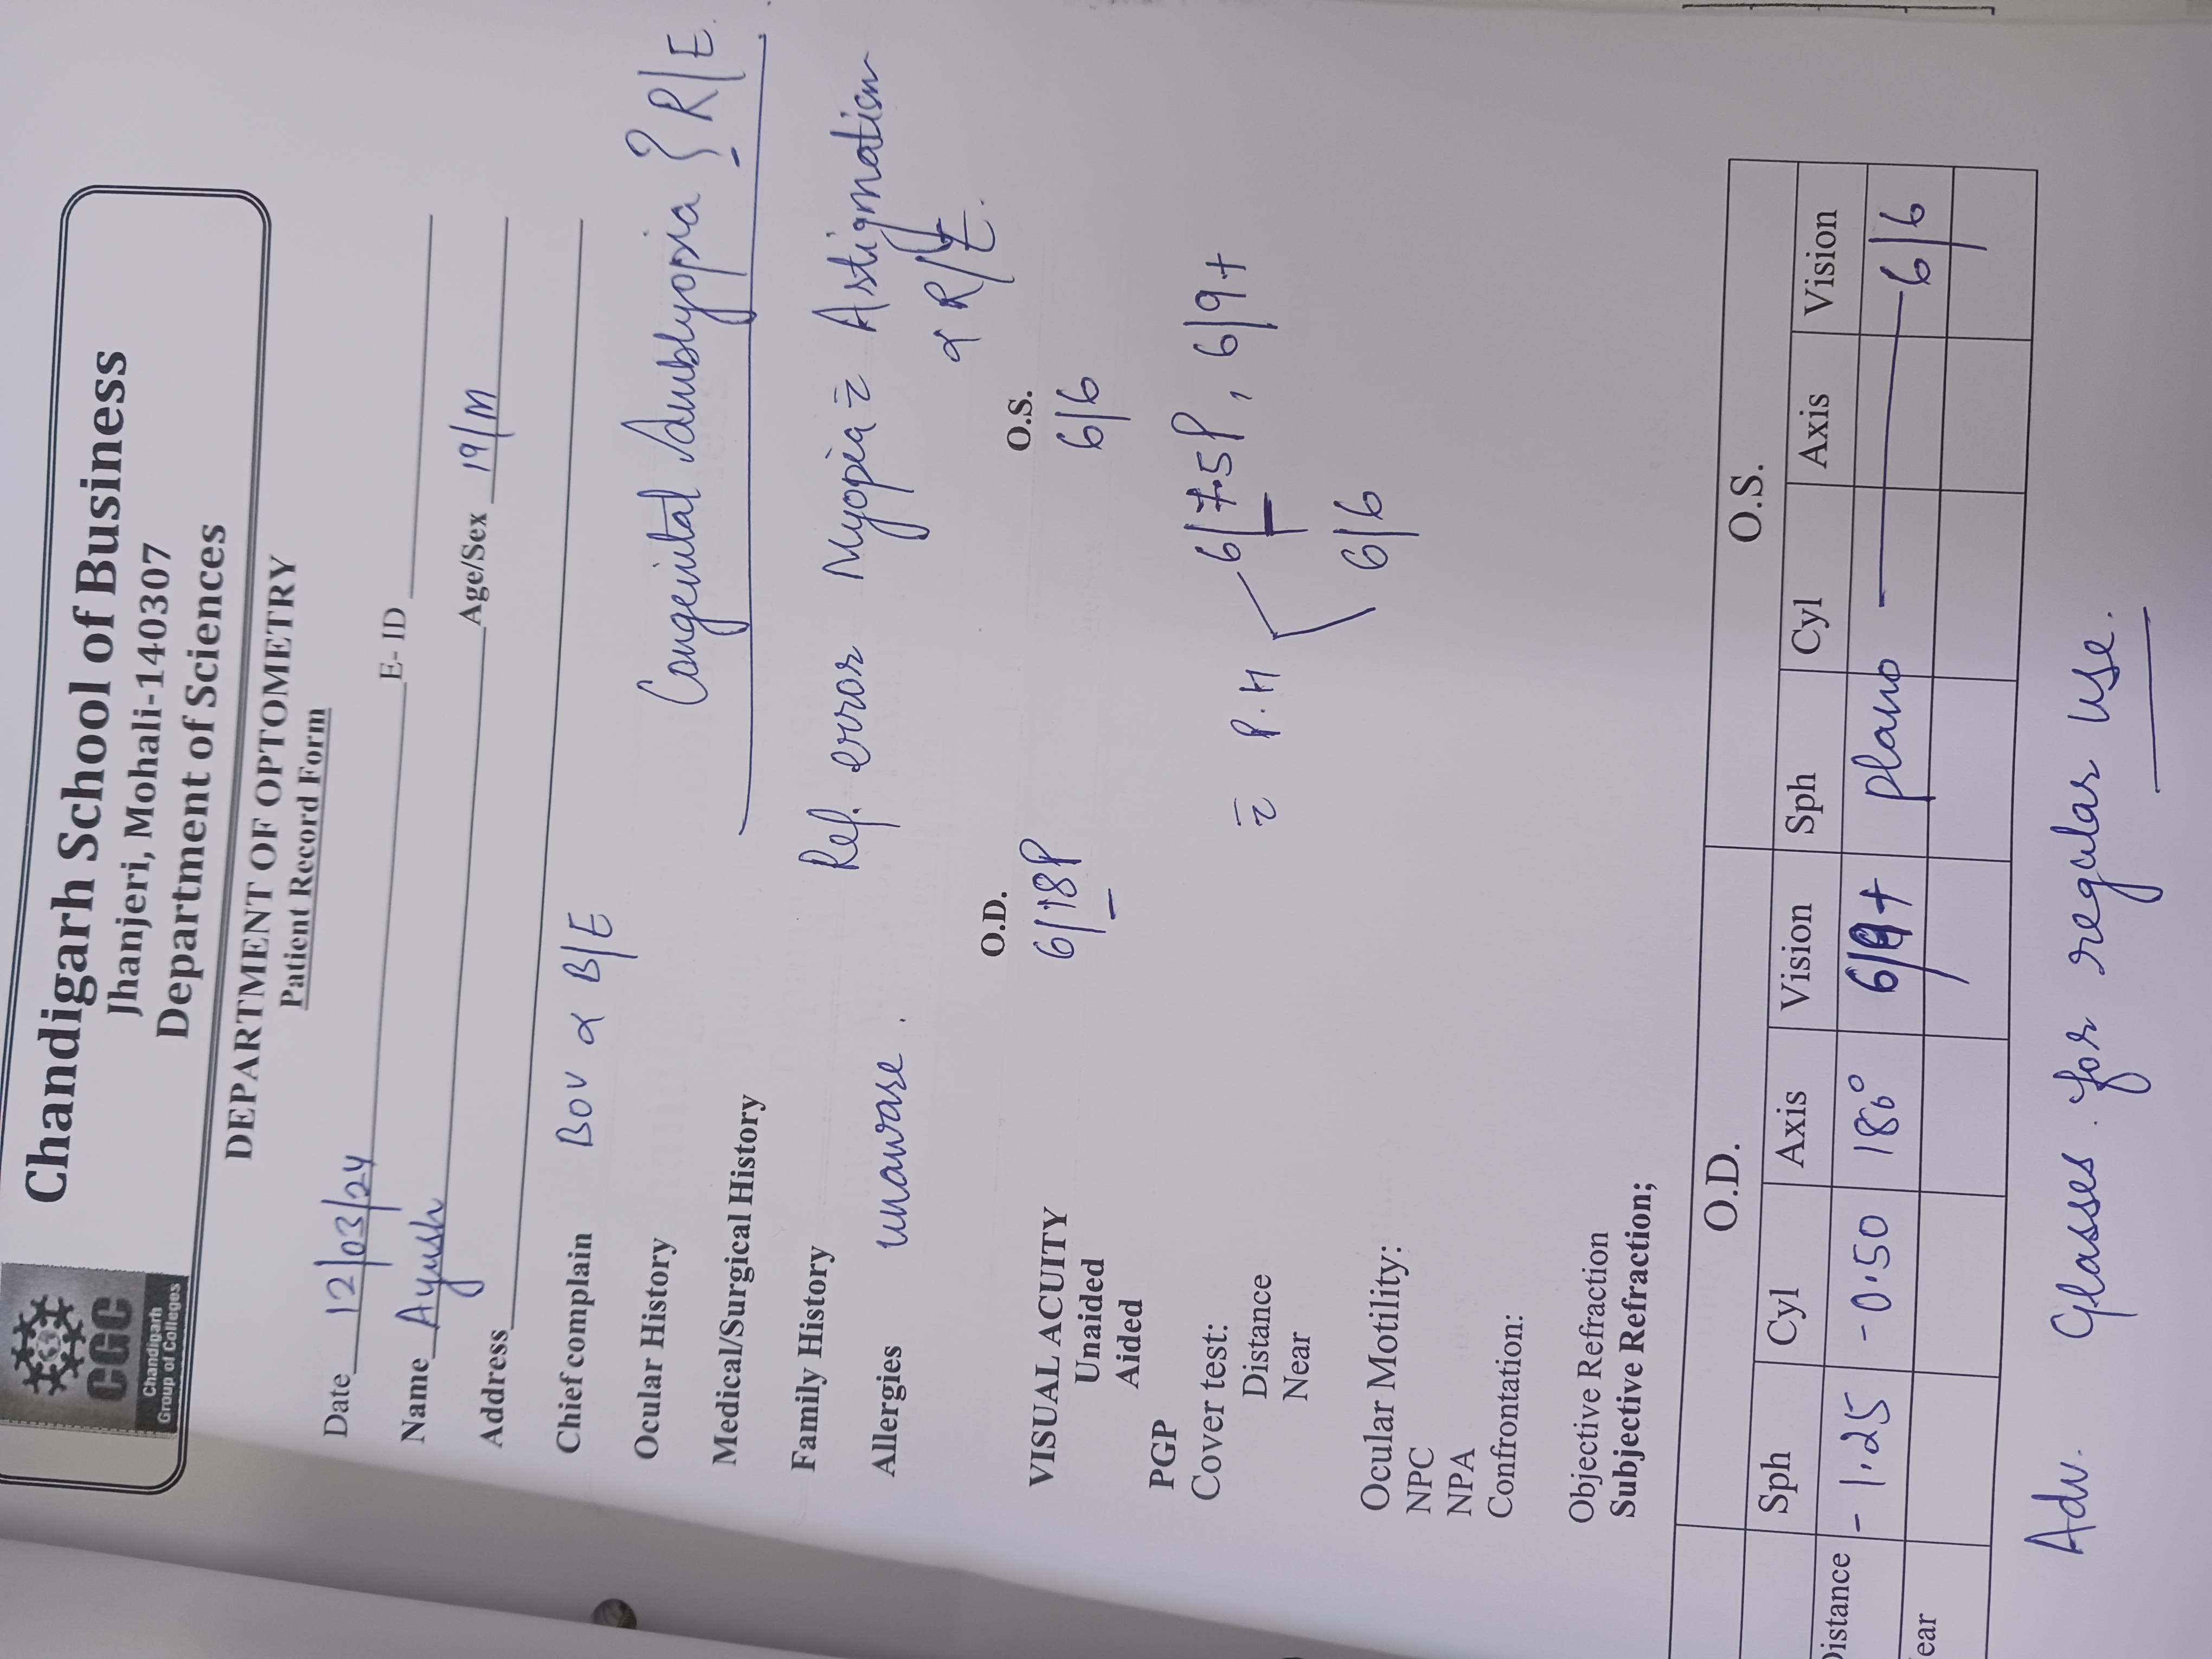 CGC
Chandigarh
Group of Colleges
Chandigarh School of Business
Jhanjeri, Mohali-140307
Department of Sciences
DEPARTMENT OF OPTOMETRY
Patient Record Form
Date 12/03/24 E- ID
Name Ayush Age/Sex 19/M
Address
Chief complain BOV ∝ B/E
Ocular History
Congenital Amblyopia ? R/E.
Medical/Surgical History
Family History
Ref. error Myopia c̄ Astigmatism
Allergies unaware.
∝ R/E.
O.D. O.S.
VISUAL ACUITY 6/18P 6/6
Unaided
Aided
PGP
Cover test:
Distance
Near
c̄ P.H 6/7.5P, 6/9+
6/6
Ocular Motility:
NPC
NPA
Confrontation:
Objective Refraction
Subjective Refraction;
O.D. O.S.
Sph Cyl Axis Vision Sph Cyl Axis Vision
Distance -1.25 -0.50 180° 6/9+ plano — 6/6
ear
Adv. Glasses for regular use.